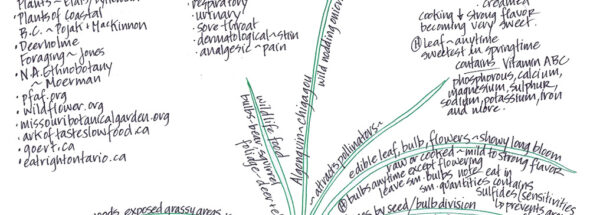 Plants of Coastal
B.C. ~ Pojar & MacKinnon
• Deerholme
Foraging ~ Jones
• N.A. Ethnobotany
~ Moerman
• pfaf.org
• wildflower.org
• missouribotanicalgarden.org
• arkoftasteslowfood.ca
• goert.ca
• eatrightontario.ca
respiratory
• urinary
• sore throat
• dermatological ~ skin
• analgesic ~ pain
wildlife food
bulbs ~ bear, squirrel
foliage ~ deer
Algonquin ~ chigagou
wild nodding onion
~ attracts pollinators ~
creamed
cooking ↓ strong flavor
becoming very sweet.
leaf ~ anytime
sweetest in springtime
contains Vitamin ABC
phosphorous, calcium,
magnesium, sulphur,
sodium, potassium, iron
and more.
edible leaf, bulb, flowers ~ showy long bloom
raw or cooked ~ mild to strong flavor
bulbs anytime except flowering
leave sm. bulbs note: eat in
sm. quantities contains
sulfides/sensitivities
↳ prevents
by seed/bulb division
exposed grassy areas